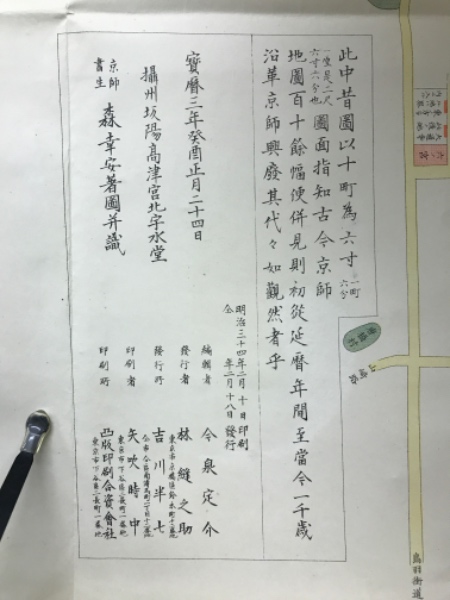 此中昔圖以十町為六寸一町六分
一壹是二尺六寸六分也圖面指知古今京師
地圖百十餘幅使併見則初從延曆年間至當今一千歲
沿革京師興廢其代々如觀然者乎
寶曆三年癸酉正月二十四日
攝州坂陽高津宮北宇水堂
京師書生 森幸安著圖并識
明治三十四年二月十日印刷
仝 年二月十八日發行
編輯者 今泉定介
發行者 林縫之助
東京市京橋區
發行所 吉川半七
印刷者 矢吹時中
東京市下谷區二長町一番地
印刷所 凸版印刷合資會社
東京市下谷區二長町一番地
鳥羽街道